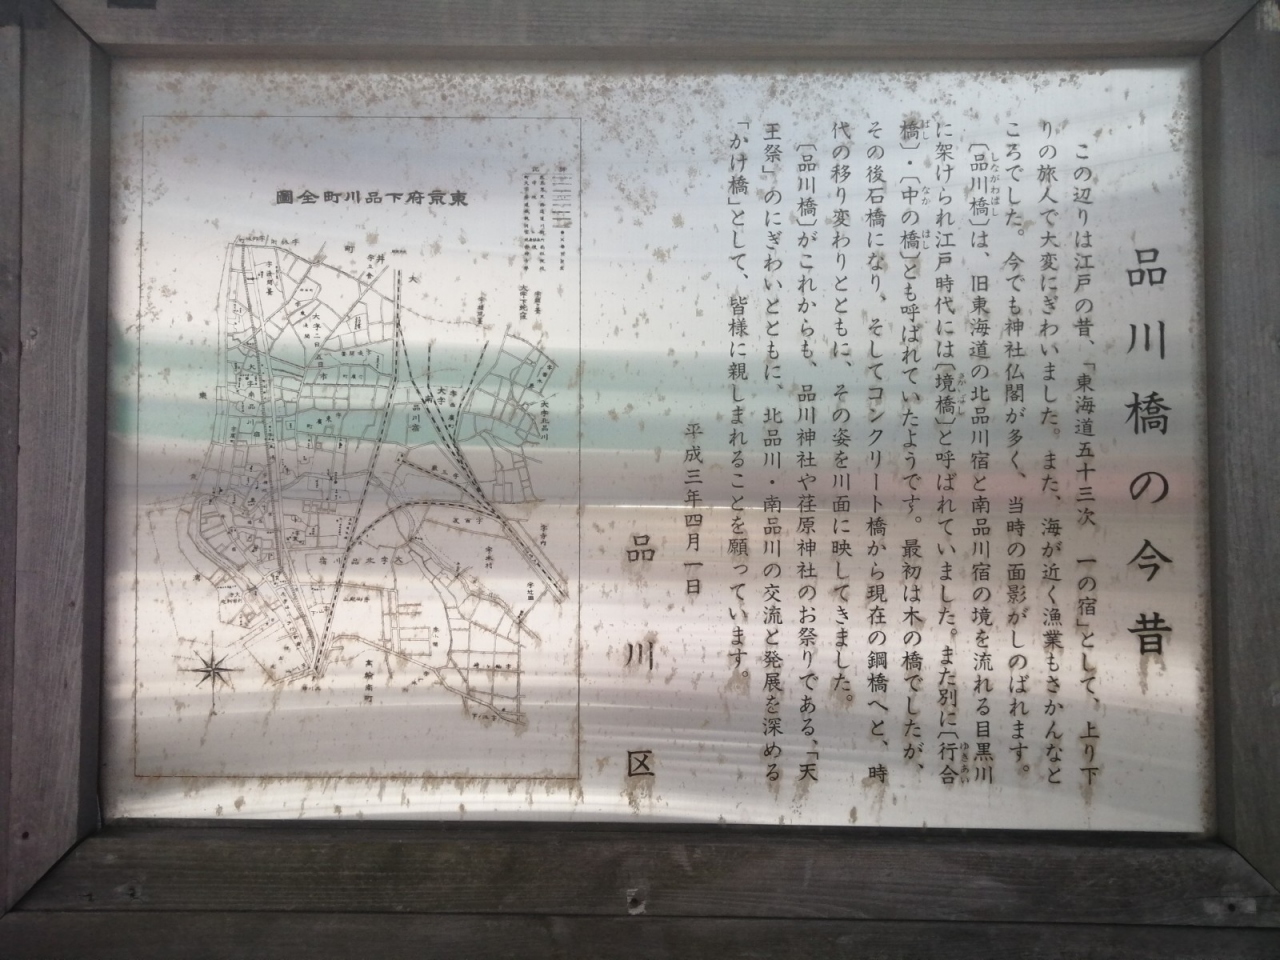 品川橋の今昔
この辺りは江戸の昔、「東海道五十三次　一の宿」として、上り下
りの旅人で大変にぎわいました。また、海が近く漁業もさかんなと
ころでした。今でも神社仏閣が多く、当時の面影がしのばれます。
〔品川橋〕は、旧東海道の北品川宿と南品川宿の境を流れる目黒川
しながわばし
に架けられ江戸時代には〔境橋〕と呼ばれていました。また別に〔行合
さかいばし
ゆきあい
橋〕・〔中の橋〕とも呼ばれていたようです。最初は木の橋でしたが、
ばし
なか
はし
その後石橋になり、そしてコンクリート橋から現在の鋼橋へと、時
代の移り変わりとともに、その姿を川面に映してきました。
〔品川橋〕がこれからも、品川神社や荏原神社のお祭りである、「天
王祭」のにぎわいとともに、北品川・南品川の交流と発展を深める
「かけ橋」として、皆様に親しまれることを願っています。
平成三年四月一日
品川区
圖全町川品下府京東
町
井
大
東
品川宿
大字北品川
高輪南町